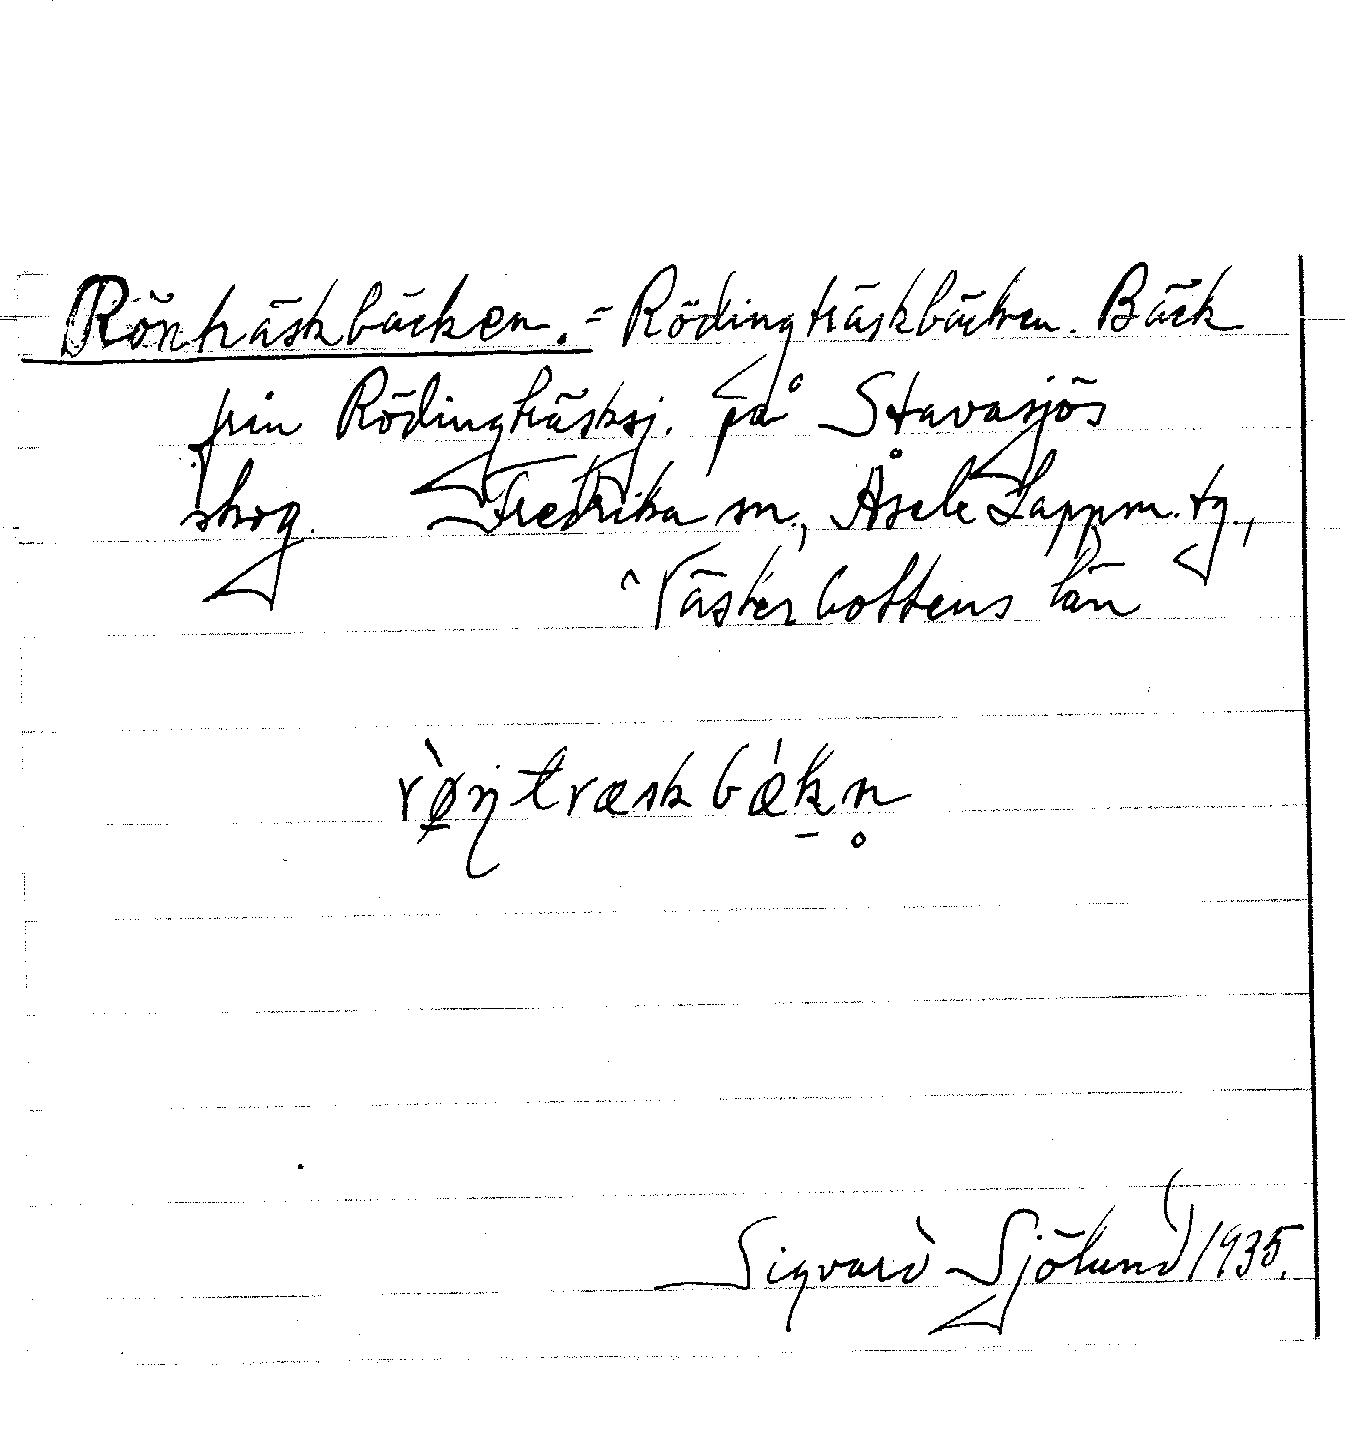 Rönträskbäcken. = Rödingträskbäcken. Bäck
från Rödingträsksj. på Stavasjös
skog. Fredrika sn., Åsele Lappm. tg.,
Västerbottens län
rø̀ntræskbǽk̠n̥
Sigvard Sjölund 1935.